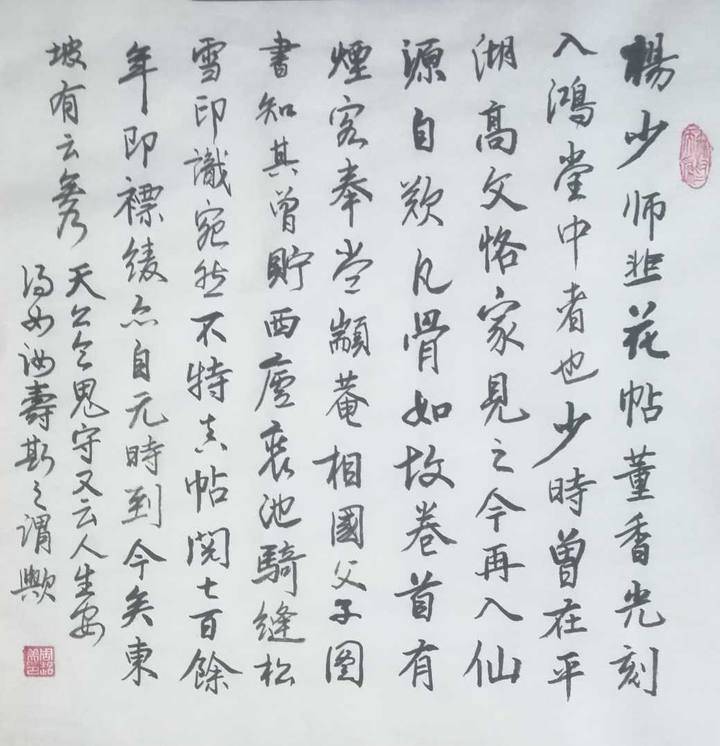 楊少師韭花帖董香光刻
入鴻堂中者也少時曾在平
湖高文恪家見之今再入仙
源自歎凡骨如故卷首有
煙客奉常顓菴相國父子圖
書知其曾貯西廬裘池騎縫松
雪印識宛然不特真帖閱七百餘
年即褾綾亦自元時到今矣東
坡有云無乃
天公令鬼守又云人生安
得如汝壽斯之謂歟